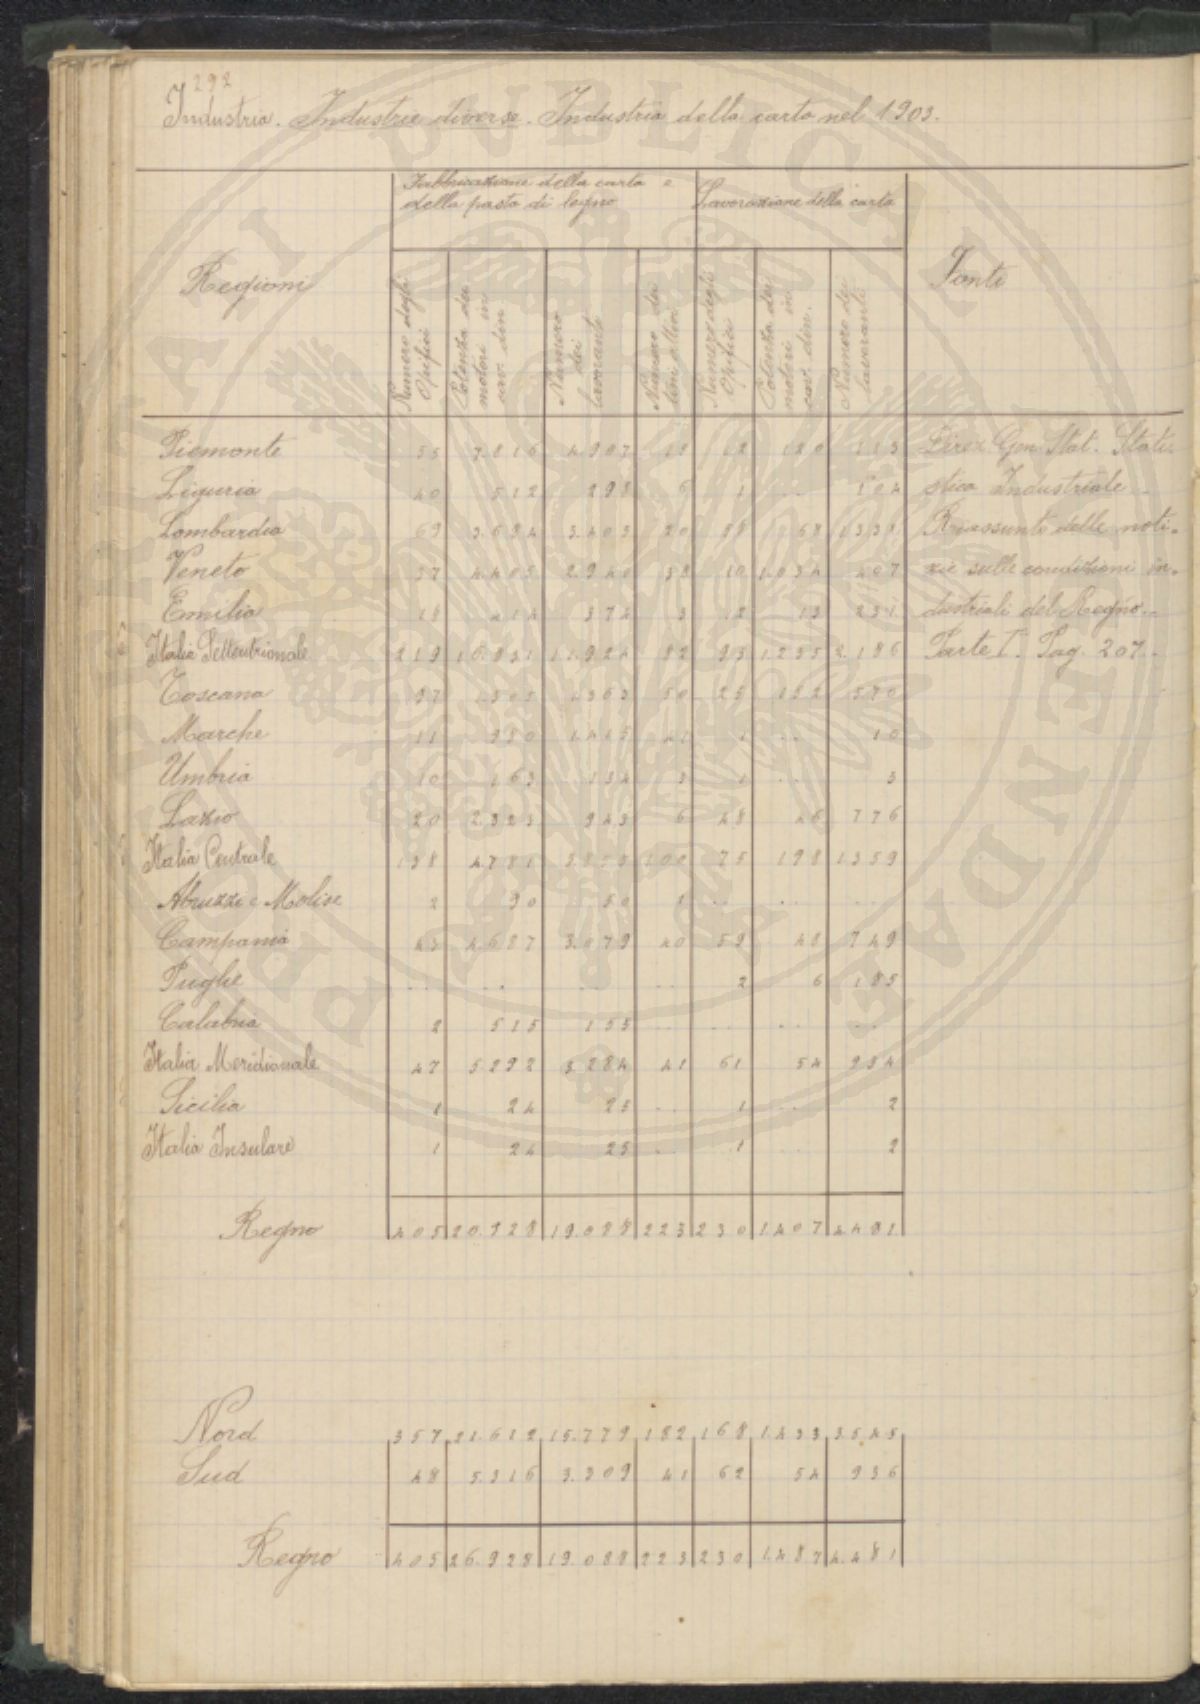 292
Industria. Industrie diverse. Industria della carta nel 1903.
Regioni
Fabbricazione della carta e
della pasta di legno
Lavorazione della carta
Fonti
Numero degli Opifici
Potenza dei motori in cav. din.
Numero dei lavoranti
Numero dei tini
Numero degli Opifici
Potenza dei motori in cav. din.
Numero dei lavoranti
Piemonte 55 7.816 4.907 19 12 120 113 Direz Gen. Stat. Stati-
Liguria 40 512 298 6 1 .. 104 stica Industriale
Lombardia 69 3.694 3.403 20 58 68 1331 Riassunto delle noti-
Veneto 37 4.405 2.940 38 10 1.034 407 zie sulle condizioni in-
Emilia 18 414 374 3 12 13 231 dustriali del Regno.
Italia Settentrionale 219 16.831 11.924 82 93 1.235 2.186 Parte I. Pag. 207.
Toscana 97 1.305 1363 50 25 152 570
Marche 11 980 1.415 41 1 .. 10
Umbria 10 163 134 3 1 .. 3
Lazio 20 2.323 943 6 48 46 776
Italia Centrale 138 4.781 3855 100 75 198 1.359
Abruzzi e Molise 2 90 50 1 .. .. ..
Campania 43 4.687 3.079 40 59 48 749
Puglie .. .. .. .. 2 6 185
Calabria 2 515 155 .. .. ..
Italia Meridionale 47 5.292 3.284 41 61 54 934
Sicilia 1 24 25 .. 1 .. 2
Italia Insulare 1 24 25 .. 1 .. 2
Regno 405 20.928 19.088 223 230 1.407 4481
Nord 357 21.612 15.779 182 168 1.433 3.545
Sud 48 5.316 3.309 41 62 54 936
Regno 405 26.928 19.088 223 230 1.487 4.481